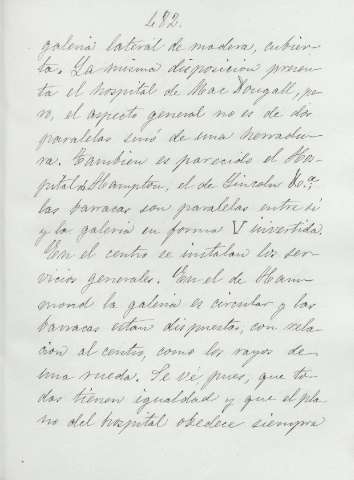 482.
galeria lateral de madera, cubier-
ta. La misma disposicion presen-
ta el hospital de Mac Dougall, pe-
ro, el aspecto general no es de dos
paralelas sinó de una herradu-
ra. Tambien es parecido el Hos-
pital de Hampton, el de Lincoln &c.ª
las barracas son paralelas entre si
y la galeria en forma V invertida.
En el centro se instalan los ser-
vicios generales. En el de Ham-
mond la galeria es circular y las
barracas estan dispuestas, con rela-
cion al centro, como los rayos de
una rueda. Se vé pues, que to-
das tienen igualdad y que el pla-
no del hospital obedece siempre